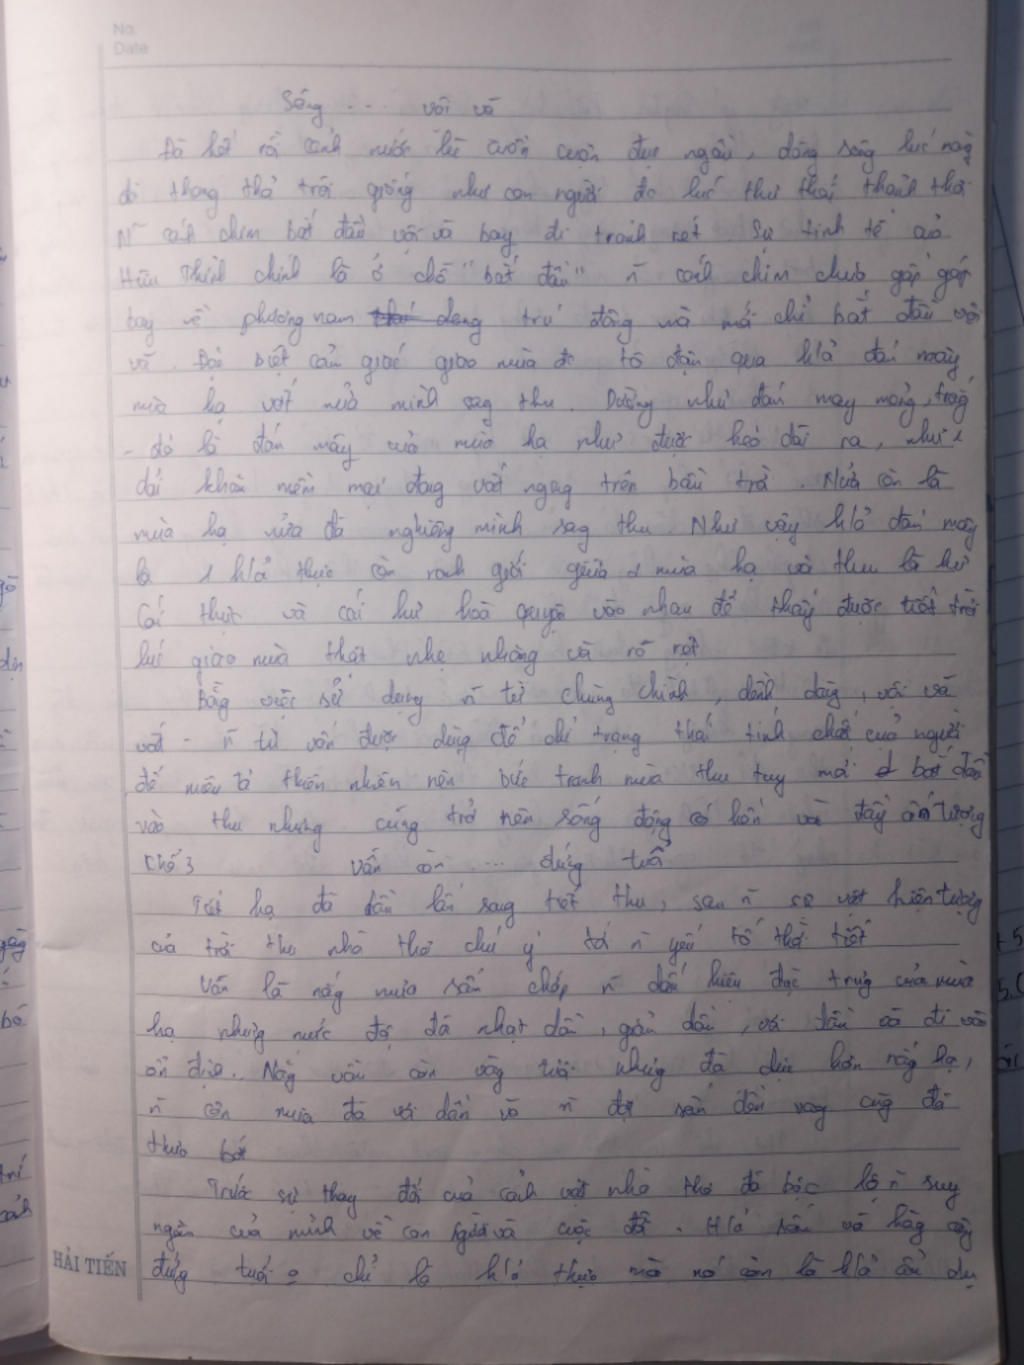 No.
Date
Sông ... vội vã
Đã hết rồi cảnh nước lũ cuồn cuộn đục ngầu, dòng sông lúc này
đi thong thả trôi giống như con người đc lúc thư thái thảnh thơi
N~ cánh chim bắt đầu vội vã bay đi tránh rét. Sự tinh tế của
Hữu Thỉnh chính là ở chỗ "bắt đầu" n~ cánh chim chưa gấp gáp
bay về phương nam trú đông mà mới chỉ bắt đầu vội
vã. Đặc biệt cảm giác giao mùa đc tô đậm qua h/ả đám mây
mùa hạ vắt nửa mình sag thu. Dường như đám mây mỏng, trắg
- đó là đám mây của mùa hạ như được kéo dài ra, như 1
dải khăn mềm mại đang vắt ngag trên bầu trời. Nửa còn là
mùa hạ nửa đã nghiêng mình sag thu. Như vậy h/ả đám mây
là 1 h/ả thực còn ranh giới giữa 2 mùa hạ và thu là hư
Cái thực và cái hư hoà quyện vào nhau để thấy được tiết trời
lúc giao mùa thật nhẹ nhàng và rõ rệt
Bằng việc sử dụng n~ từ chùng chình, dềnh dàng, vội vã
vắt - n~ từ vốn được dùng để chỉ trạng thái tính chất của người
để miêu tả thiên nhiên nên bức tranh mùa thu tuy mới bắt đầu
vào thu nhưng cũng trở nên sống động có hồn và đầy ấn tượng
Khổ 3 Vẫn còn ... đứng tuổi
Tiết hạ đã dần lấn sang tiết thu, sau n~ sự vật hiện tượng
của trời thu nhà thơ chú ý tới n~ yếu tố thời tiết
Vẫn là nắng mưa sấm chớp n~ dấu hiệu đặc trưng của mùa
hạ nhưng mức độ đã nhạt dần, giảm dần, vơi dần và đi vào
ổn định. Nắng vẫn còn vàg tươi nhưng đã dịu hơn nắng hạ,
n~ cơn mưa đã vơi dần và n~ đợt sấm đền vang cũng đã
thưa bớt
Trước sự thay đổi của cảnh vật nhà thơ đã bộc lộ n~ suy
ngẫm của mình về con người và cuộc đời. H/ả sấm và hàg cây
đứng tuổi o chỉ là h/ả thực mà nó còn là h/ả ẩn dụ
HẢI TIẾN